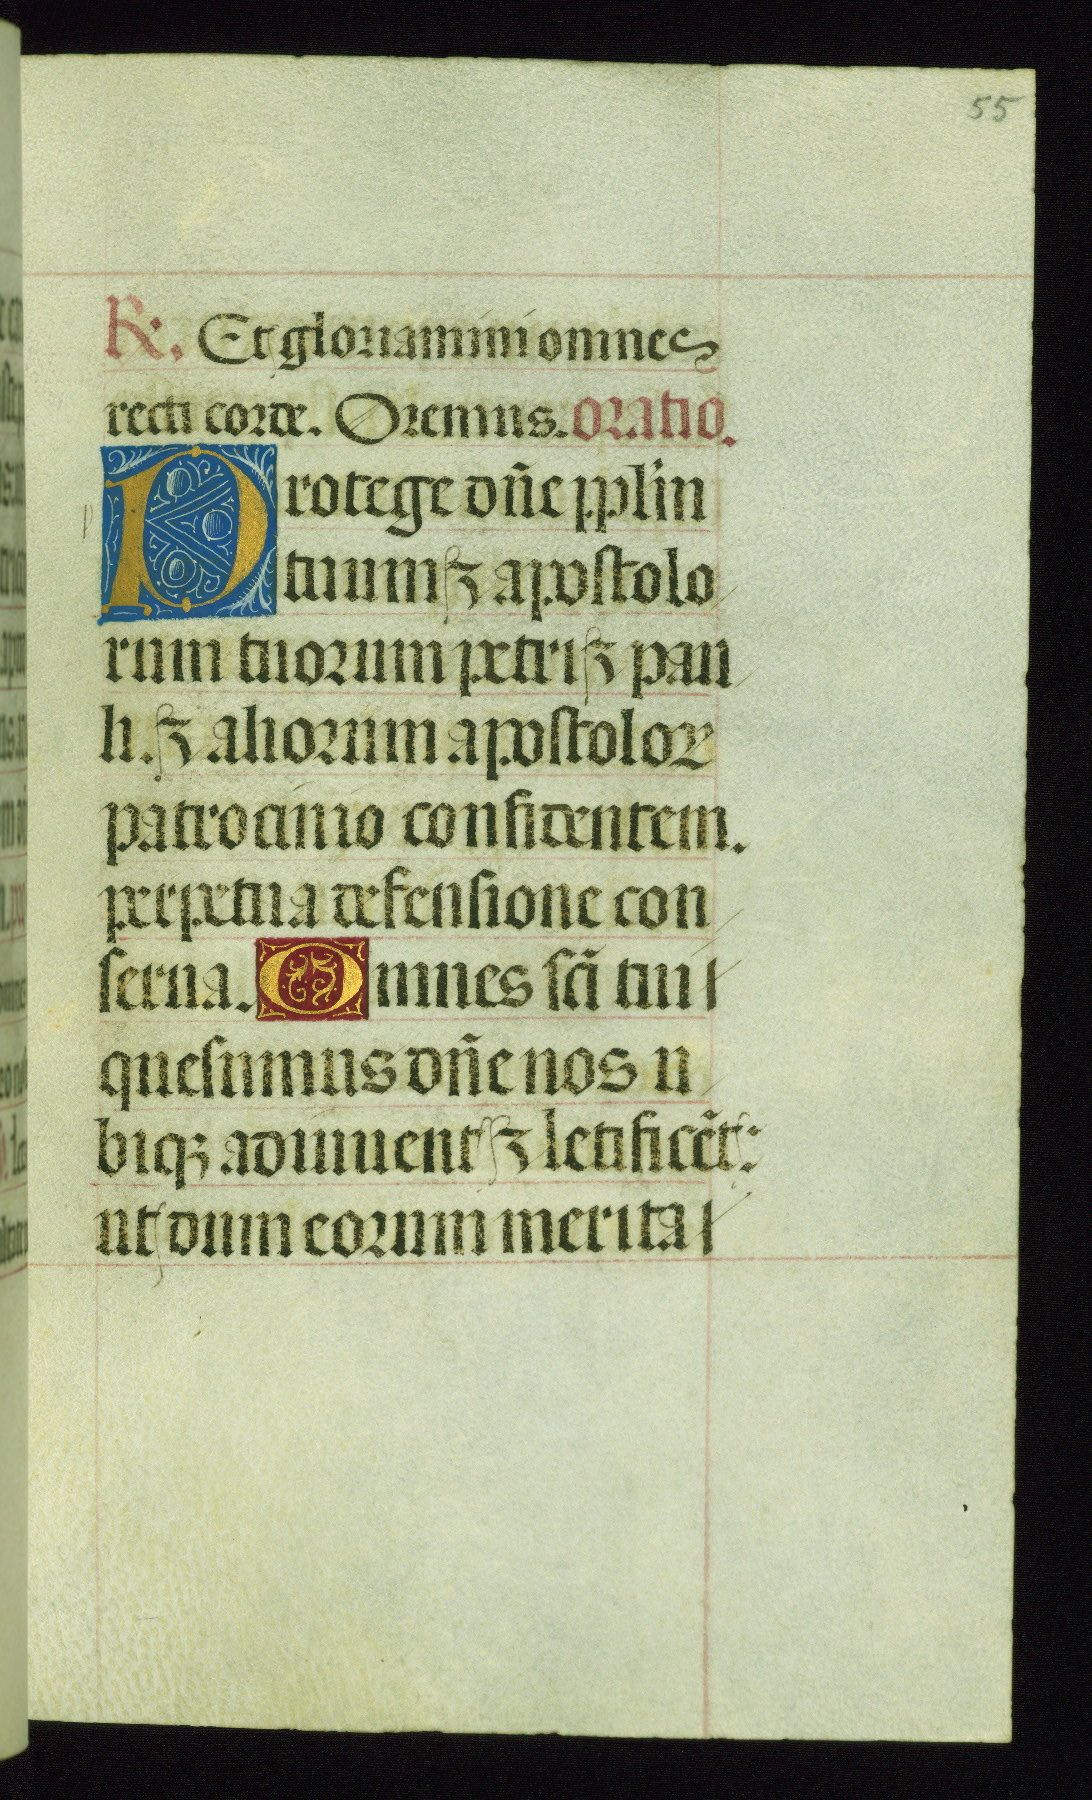 55
R. Et gloriamini omnes
recti corde. Oremus. oratio.
Protege dn̄e pplm̄
tuum ⁊ apostolo
rum tuorum petri ⁊ pau
li. ⁊ aliorum apostoloꝝ
patrocinio confidentem.
perpetua defensione con
serua. Omnes sc̄i tui
quesumus dn̄e nos u
biqꝫ adiuuent ⁊ letificēt:
ut dum eorum merita